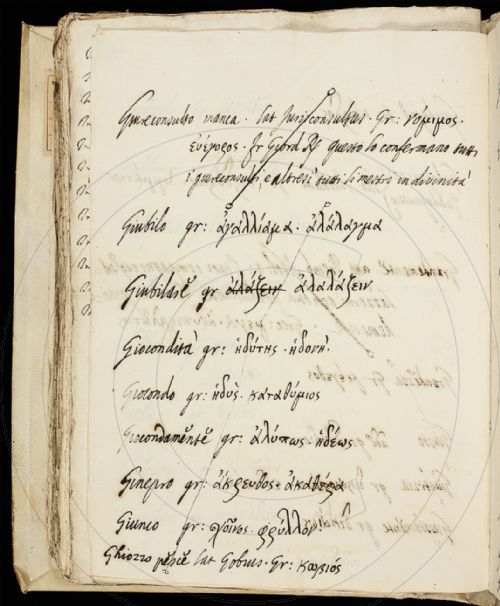 Giureconsulto manca. lat Jurisconsultus. Gr: νόμιμος.
Fr Giord questo lo confermano tutti
i giureconsulti, e altresì tutti li mestri in divinità
Giubilo gr: ἀγαλλίαμα. ἀλάλαγμα
Giubilare gr ἀλάζειν ἀλαλάζειν
Giocondità gr: ἡδύτης. ἡδονή.
Giocondo gr: ἡδὺς. καταθύμιος
Giocondamente gr: ἀλύπως. ἡδέως
Ginepro gr: ἄκρευθος.
Giunco gr: φρύλλον
Ghiozzo pesce lat Gobius. Gr: κωβιός